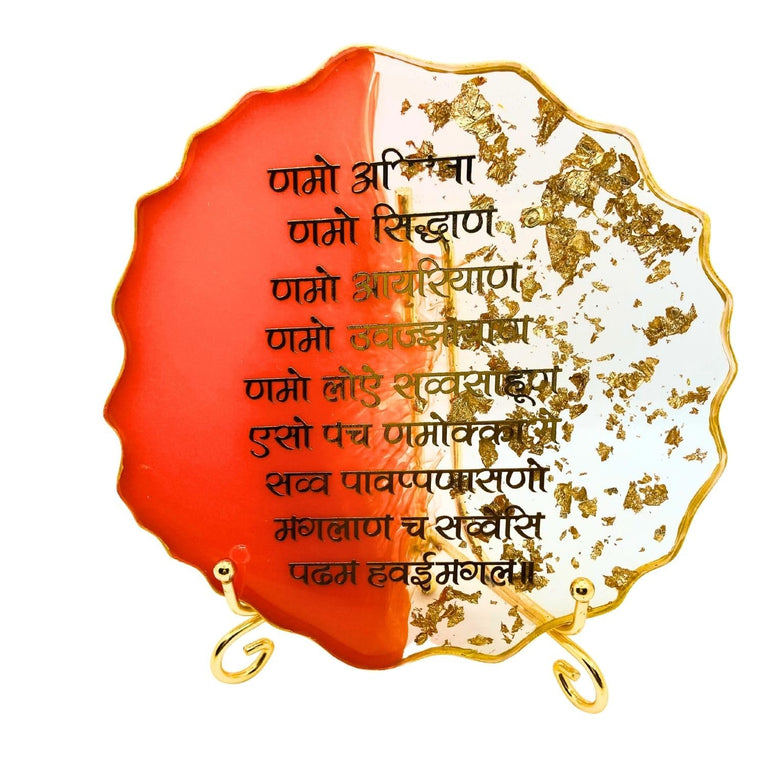 णमो
णमो सिद्धाण
णमो आयरियाण
णमो उवज्झायाण
णमो लोऐ सव्वसाहूण
एसो पच
सव्व पावप्पणासणो
मगलाण च सव्वेसि
पढम हवई मगल॥